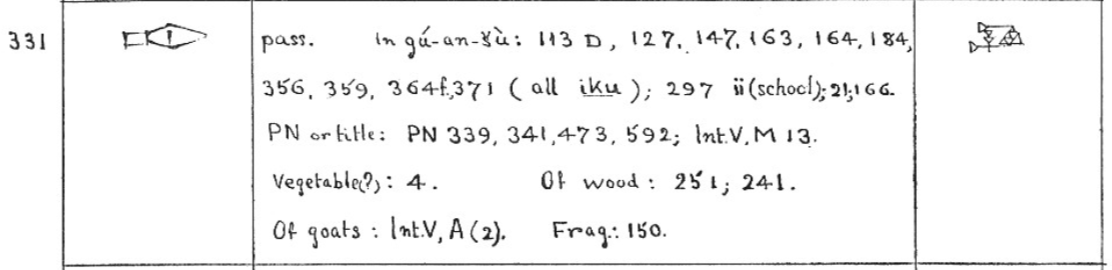 331 pass. In gú-an-šè: 113 D, 127, 147, 163, 164, 184,
356, 359, 364f, 371 (all iku); 297 ii (school); 21; 166.
PN or title: PN 339, 341, 473, 592; Int.V, M 13.
Vegetable(?): 4. Of wood: 251; 241.
Of goats: Int.V, A (2). Frag.: 150.